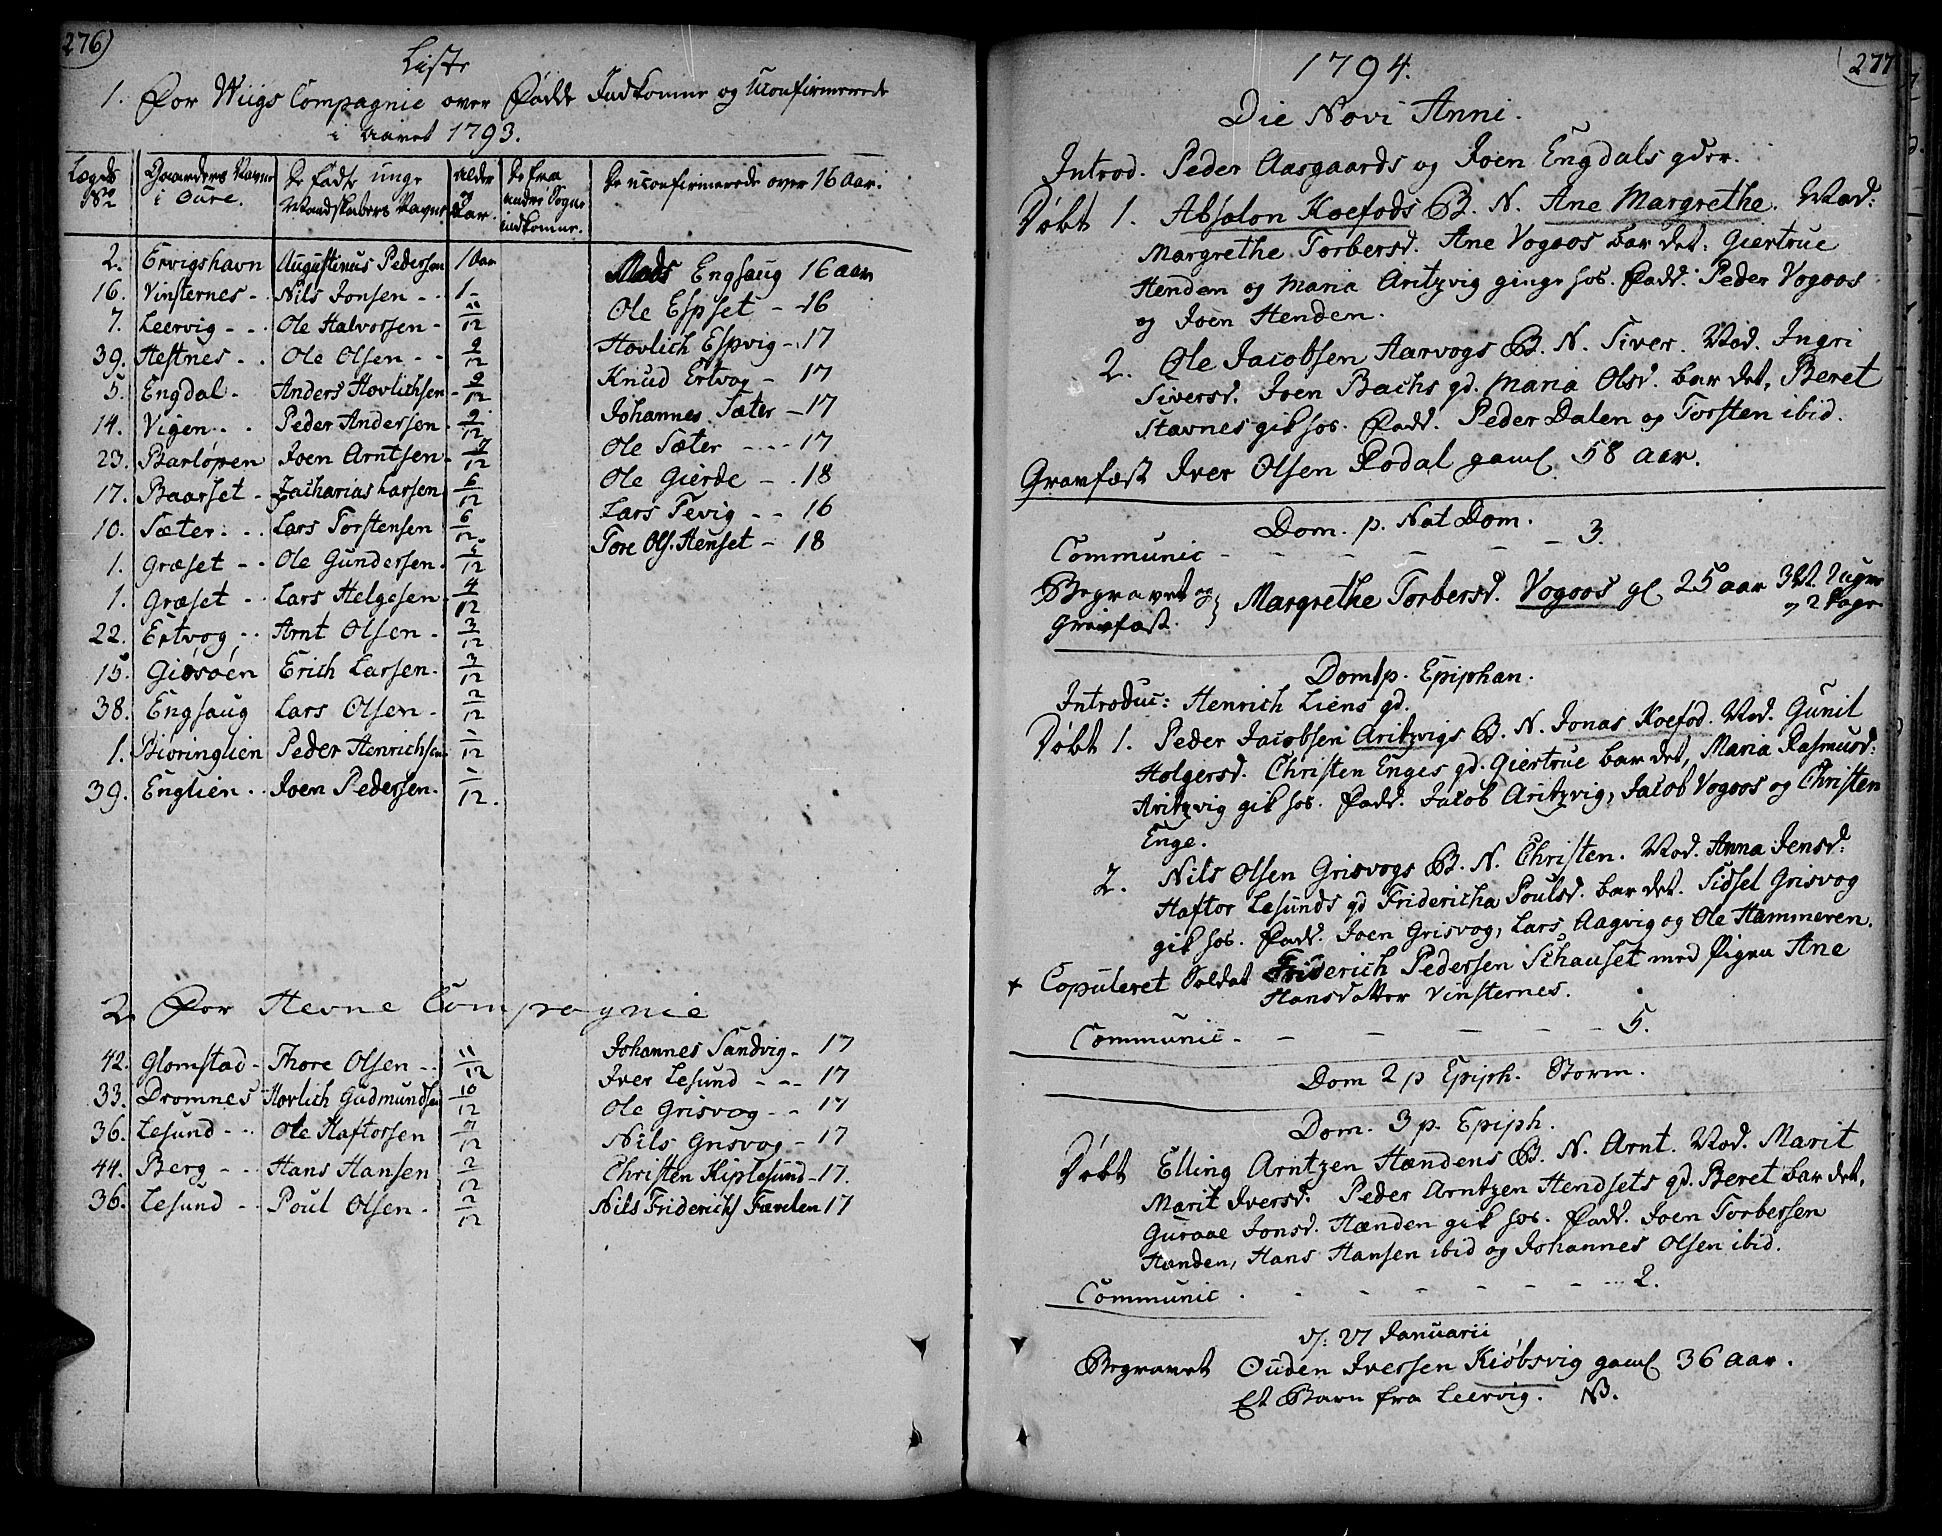 276)
Liste
1. For Wiigs Compagnie over Fødde Indkomne og Uconfirmerede
i Aaret 1793.
Lægds No | Gaardens Navne i Oure. | De fødte unge Mandskabers Navne | Alder og Aar. | De fra andre Sogne indkomne. | De uconfirmerede over 16 Aar.
2. Ervigshavn Augustinus Pedersen 1 Aar Mads Engsaug 16 aar
16. Vinsternes - Nils Jonsen - - 1 - Ole Espset - 16
7. Leervig - - Ole Halvorsen - 11/12 Hovlich Espvig - 17
39. Hestnes - . Ole Olsen - - 9/12 Knud Ertvog - 17
5. Engdal - Anders Hovlichsen - 9/12 Johannes Sæter - 17
14. Vigen - . Peder Andersen - 9/12 Ole Sæter - - - 17
23. Barløpen Joen Arntsen - 7/12 Ole Gierde - . 18
17. Baarset - Zacharias Larsen 6/12 Lars Tevig - - 16
10. Sæter - . Lars Torstensen 6/12 Tore Ols. Henset - 18
1. Græset - - Ole Gundersen - /12
1. Græset - Lars Helgesen - 4/12
22. Ertvog - - Arnt Olsen - 3/12
15. Giøsøen Erich Larsen - 3/12
38. Engsaug Lars Olsen - 2/12
1. Bioringlien Peder Henrichsen 1/12
39. Englien - . Joen Pedersen - 1/12.
2. For Hevne Compagnie
42. Glomstad - Thore Olsen - - 11/12 Johannes Sandvig - 17
33. Dromnes Hovlich Gudmundsen 10/12 Iver Lesund - - - 17
36. Lesund - - Ole Haftorsen 7/12 Ole Grisvog - - 17
44. Berg - - Hans Hansen 2/12 Nils Grisvog - 17
36. Lesund - - Poul Olsen - 2/12 Christen Kiplesund - 17.
Nils Friderichs Farelen 17
277
1794.
Die Novi Anni.
Introd. Peder Aasgaards og Joen Engdals qder.
Døbt 1. Absolon Koefods B. N. Ane Margrethe. Mod:
Margrethe Torbersd. Ane Vogoos bar det. Giertrue
Henden og Maria Aritzvig ginge hos. Fadd: Peder Vogoos
og Joen Henden.
2. Ole Jacobsen Aarvogs B. N. Siver. Mod. Ingri
Siversd. Joen Bachs qd. Maria Olsd. bar det, Beret
Stavnes gik hos. Fadd. Peder Dalen og Torsten ibid.
Gravfæst Iver Olsen Rodal gaml 58 aar.
Dom. p. Nat Dom.
Communic - - - - - - 3.
Begravet og Gravfæst. } Margrethe Torbersd. Vogoos gl 25 aar 32 Uger
og 2 Dage
Dom 1 p. Epiphan.
Introduc: Henrich Liens qd.
Døbt 1. Peder Jacobsen Aritzvigs B. N. Jonas Koefod. Mod. Gunil
Holgersd. Christen Enges qd. Giertrue bar det, Maria Rasmusd:
Aritzvig gik hos. Fadd. Jacob Aritzvig, Jacob Vogoos og Christen
Enge.
2. Nils Olsen Grisvogs B. N. Christen. Mod. Anna Jensd:
Haftor Lesunds qd Fridericha Poulsd. bar det. Sidsel Grisvog
gik hos. Fadd. Joen Grisvog, Lars Aagvig og Ole Hammeren.
+ Copuleret Soldat Friderich Pedersen Schauset med Pigen Ane
Hansdatter Vinsternes.
Communic - - - - - - 5.
Dom 2 p Epiph. Storm.
Dom. 3 p. Epiph.
Døbt Elling Arntzen Hændens B. N. Arnt. Mod. Marit
Marit Iversd. Peder Arntzen Hendsets qd. Beret bar det,
Guroae Jonsd. Hænden gik hos. Fadd. Joen Torbersen
Hænden, Hans Hansen ibid og Johannes Olsen ibid.
Communic . - - - - - - 2.
d: 27 Januarii
Begravet Ouden Iversen Kiøbsvig gaml 36 Aar.
Et Barn fra Leervig. NB.